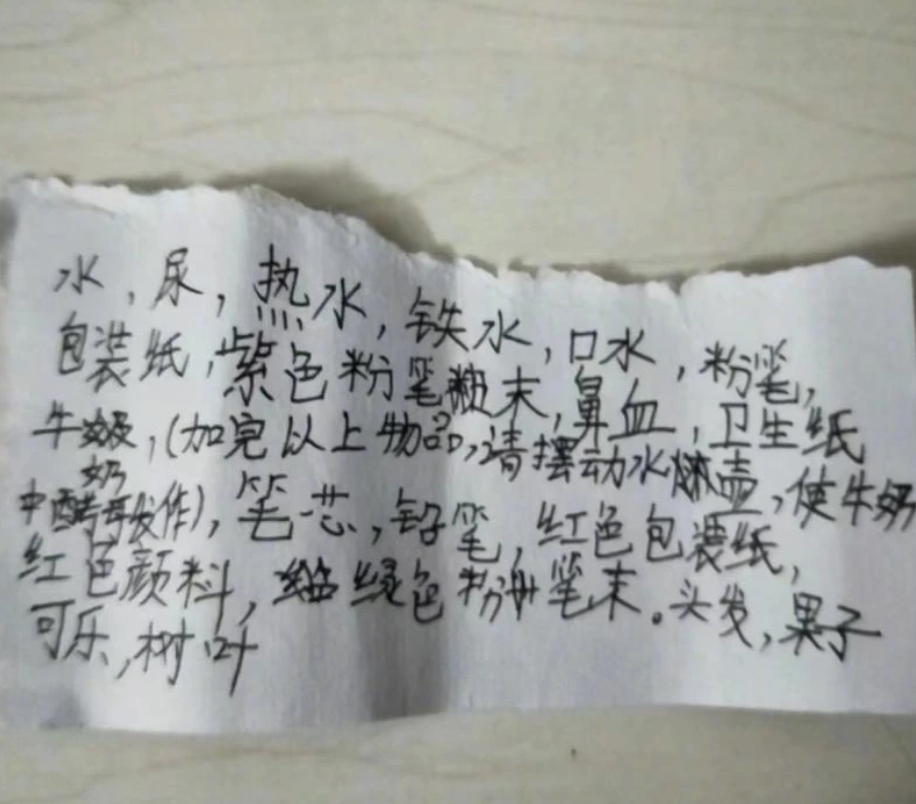 水，尿，热水，铁水，口水，粉笔，
包装纸，紫色粉笔末，鼻血，卫生纸
牛奶，(加完以上物品，请摆动水燃壶，使牛奶
中奶酵母发作)，笔芯，铅笔，红色包装纸，
红色颜料，绿色粉笔末。头发，果子
可乐，树叶